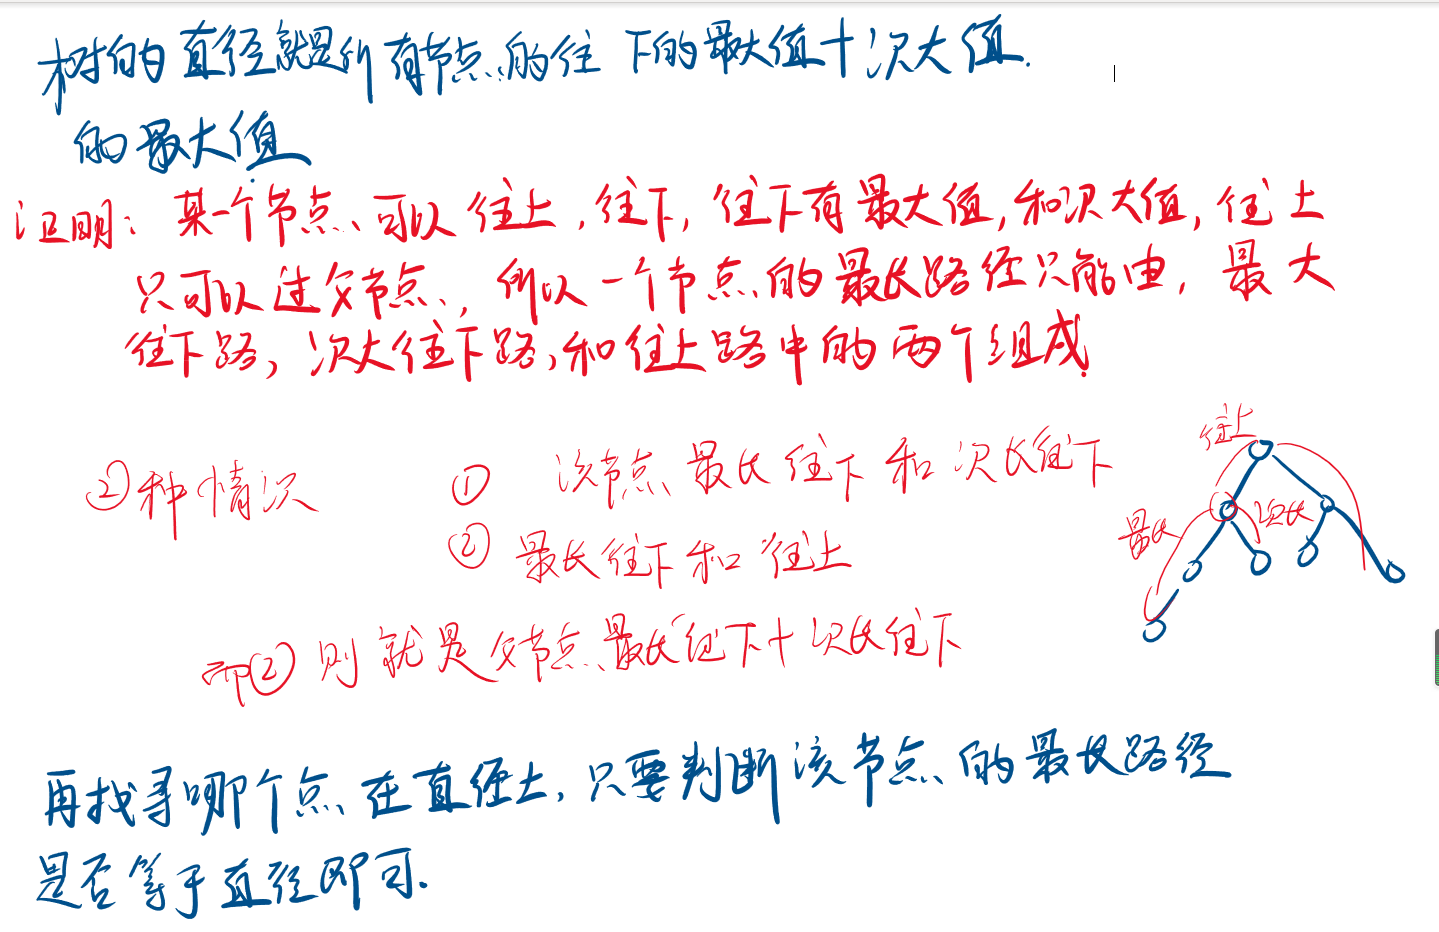 树的直径就是所有节点的往下的最大值+次大值.
的最大值
证明: 某一个节点、可以往上,往下,往下有最大值,和次大值,往上
只可以过父节点,所以一个节点的最长路径只能由,最大
往下路,次大往下路,和往上路中的两个组成.
②种情况 ① 该节点最长往下和次长往下
② 最长往下和往上
而② 则就是父节点最长往下+次长往下
往上
最长
次长
再找寻哪个点在直径上,只要判断该节点的最长路径
是否等于直径即可.